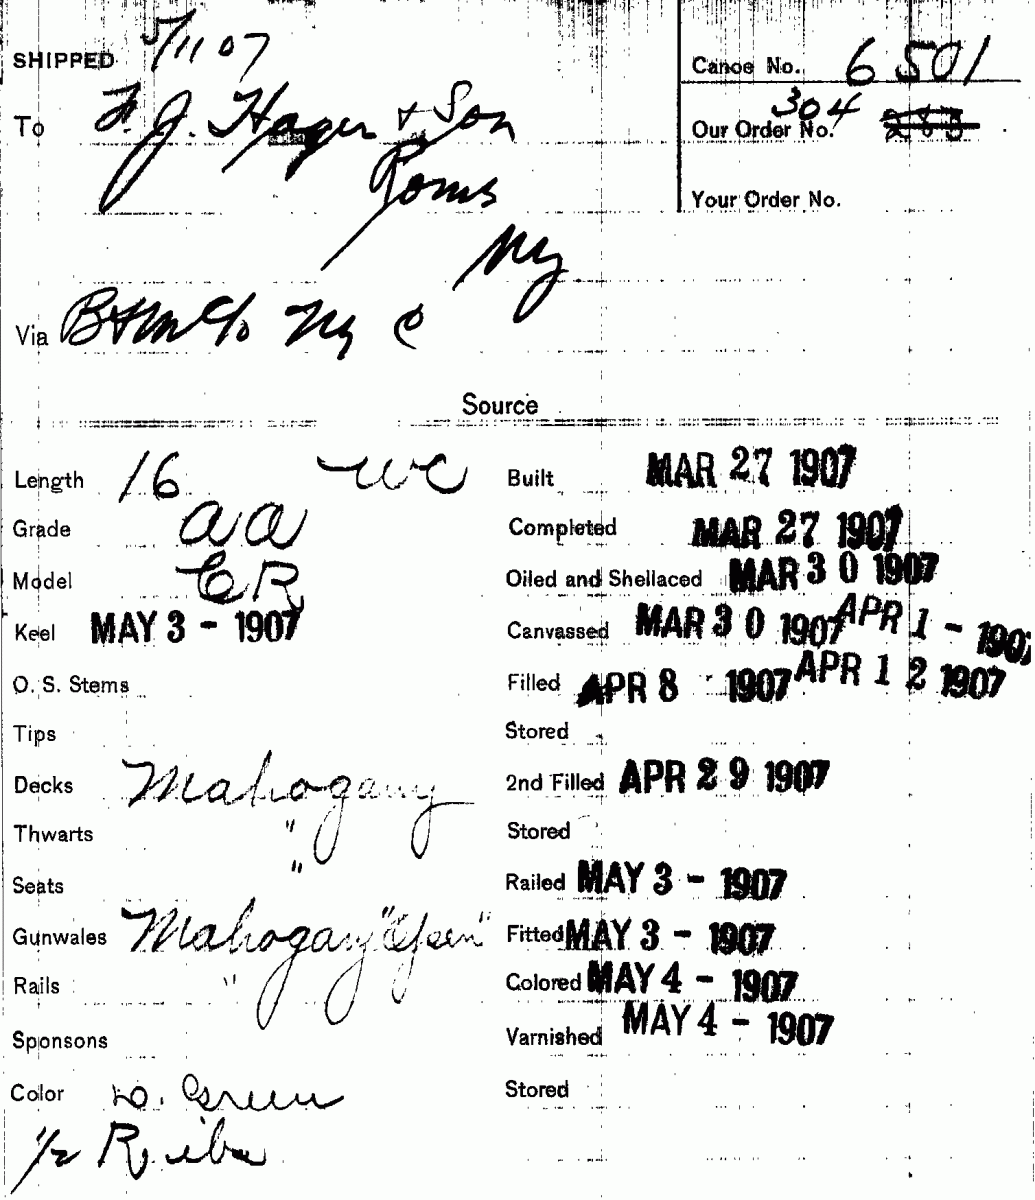 SHIPPED 5/11 07
Canoe No. 6501
To F. J. Hager + Son
Our Order No. 304 283
Roms
Your Order No.
Ny
Via B+M c/o Ny C
Source
Length 16 WC
Built MAR 27 1907
Grade aa
Completed MAR 27 1907
Model CR
Oiled and Shellaced MAR 30 1907
Keel MAY 3 - 1907
Canvassed MAR 30 1907 APR 1 - 1907
O. S. Stems
Filled APR 8 1907 APR 12 1907
Tips
Stored
Decks Mahogany
2nd Filled APR 29 1907
Thwarts "
Stored
Seats "
Railed MAY 3 - 1907
Gunwales Mahogany "Open"
Fitted MAY 3 - 1907
Rails "
Colored MAY 4 - 1907
Sponsons
Varnished MAY 4 - 1907
Color D. Green
Stored
1/2 Ribs